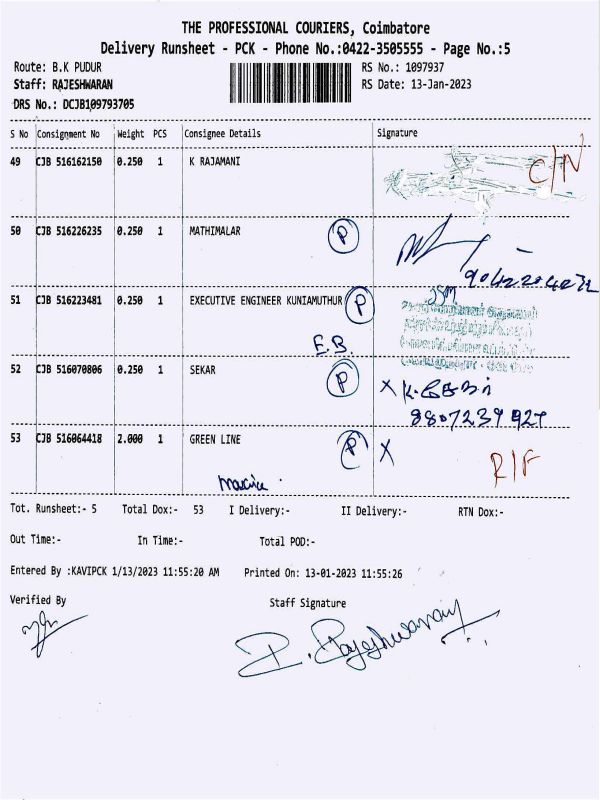 THE PROFESSIONAL COURIERS, Coimbatore
Delivery Runsheet - PCK - Phone No.:0422-3505555 - Page No.:5
Route: B.K PUDUR RS No.: 1097937
Staff: RAJESHWARAN RS Date: 13-Jan-2023
DRS No.: DCJB109793705
S No Consignment No Weight PCS Consignee Details Signature
49 CJB 516162150 0.250 1 K RAJAMANI C/N
50 CJB 516226235 0.250 1 MATHIMALAR P
51 CJB 516223481 0.250 1 EXECUTIVE ENGINEER KUNIAMUTHUR P
E.B.
52 CJB 516070806 0.250 1 SEKAR P X K.சேகர்
8807239927
53 CJB 516064418 2.000 1 GREEN LINE P X R/F
Tot. Runsheet:- 5 Total Dox:- 53 I Delivery:- II Delivery:- RTN Dox:-
Out Time:- In Time:- Total POD:-
Entered By :KAVIPCK 1/13/2023 11:55:20 AM Printed On: 13-01-2023 11:55:26
Verified By Staff Signature
R. Rajeshwaran